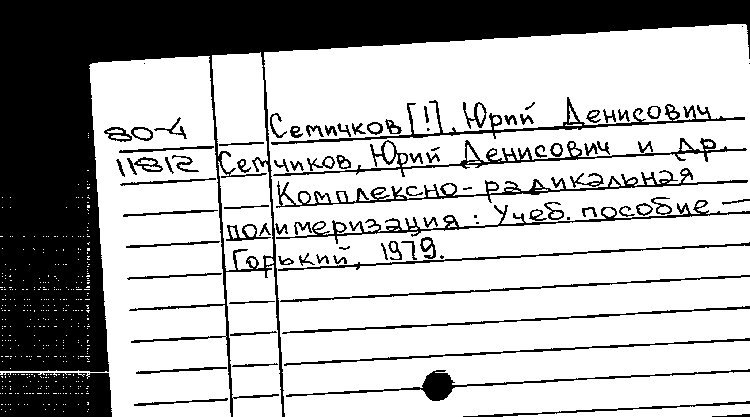 80-4 Семичков [!], Юрий Денисович.
11812 Семчиков, Юрий Денисович и др.
Комплексно-радикальная
полимеризация: Учеб. пособие. —
Горький, 1979.